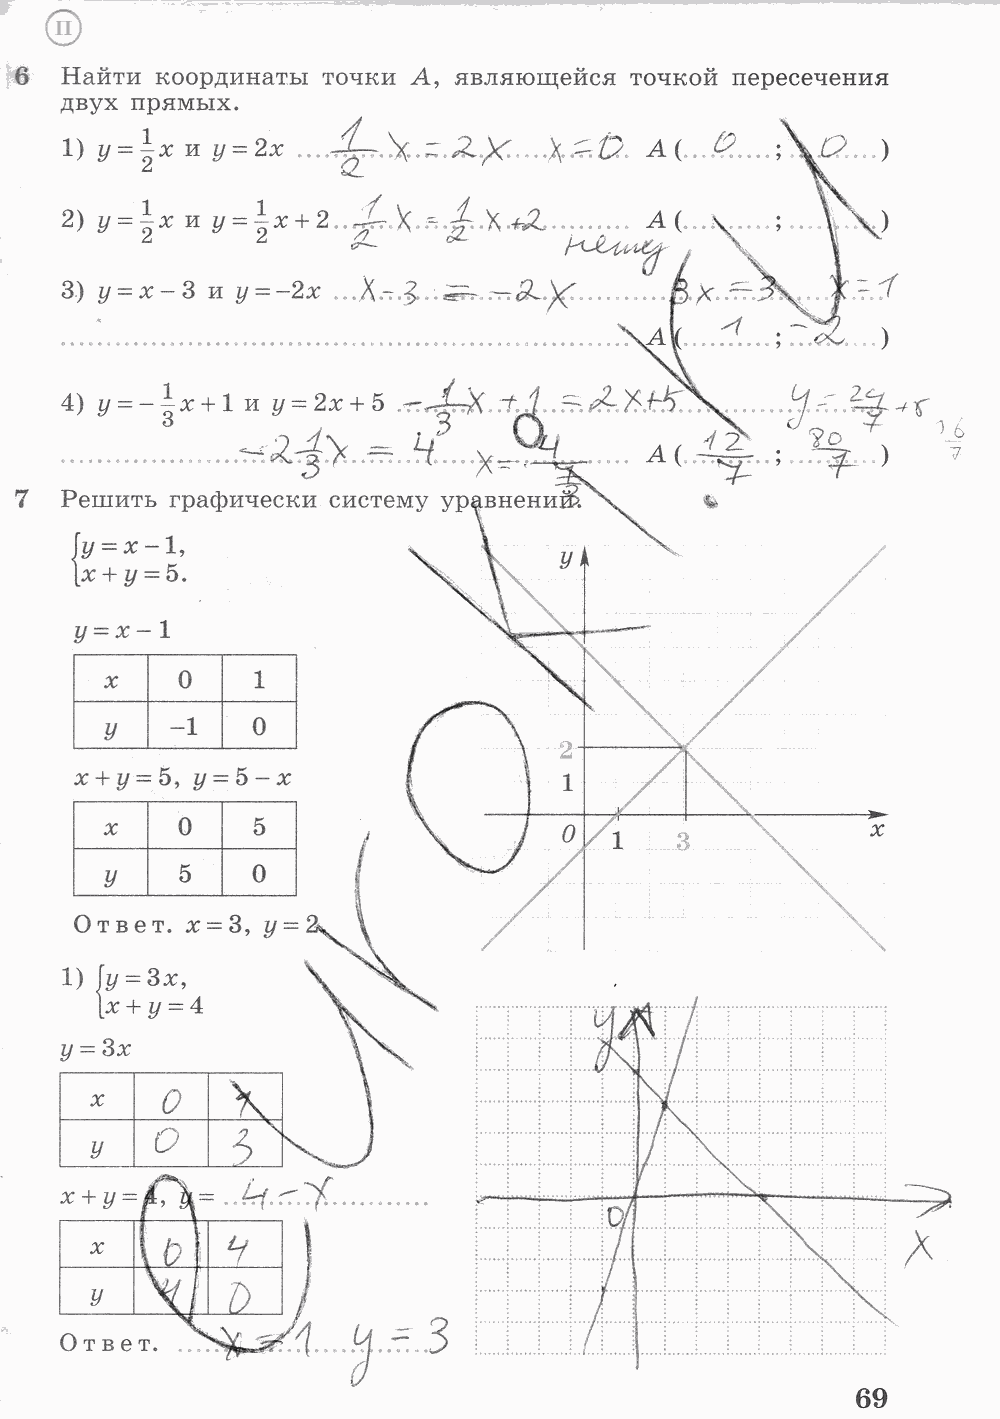 П
6 Найти координаты точки A, являющейся точкой пересечения
двух прямых.
1) y = 1/2 x и y = 2x 1/2 x = 2x x = 0 A ( 0 ; 0 )
2) y = 1/2 x и y = 1/2 x + 2 1/2 x = 1/2 x + 2 A ( ; )
нету
3) y = x − 3 и y = −2x x − 3 = −2x 3x = 3 x = 1
A ( 1 ; −2 )
4) y = −1/3 x + 1 и y = 2x + 5 −1/3 x + 1 = 2x + 5 y = 24/7 + 5
−2 1/3 x = 4 A ( 12/7 ; 80/7 )
7 Решить графически систему уравнений.
y = x − 1,
x + y = 5.
y = x − 1
x 0 1
y −1 0
x + y = 5, y = 5 − x
x 0 5
y 5 0
Ответ. x = 3, y = 2
y
2
1
0 1 3 x
1) y = 3x,
x + y = 4
y = 3x
x 0 1
y 0 3
x + y = 4, y = 4 − x
x 0 4
y 4 0
Ответ. x = 1 y = 3
y
0
x
69